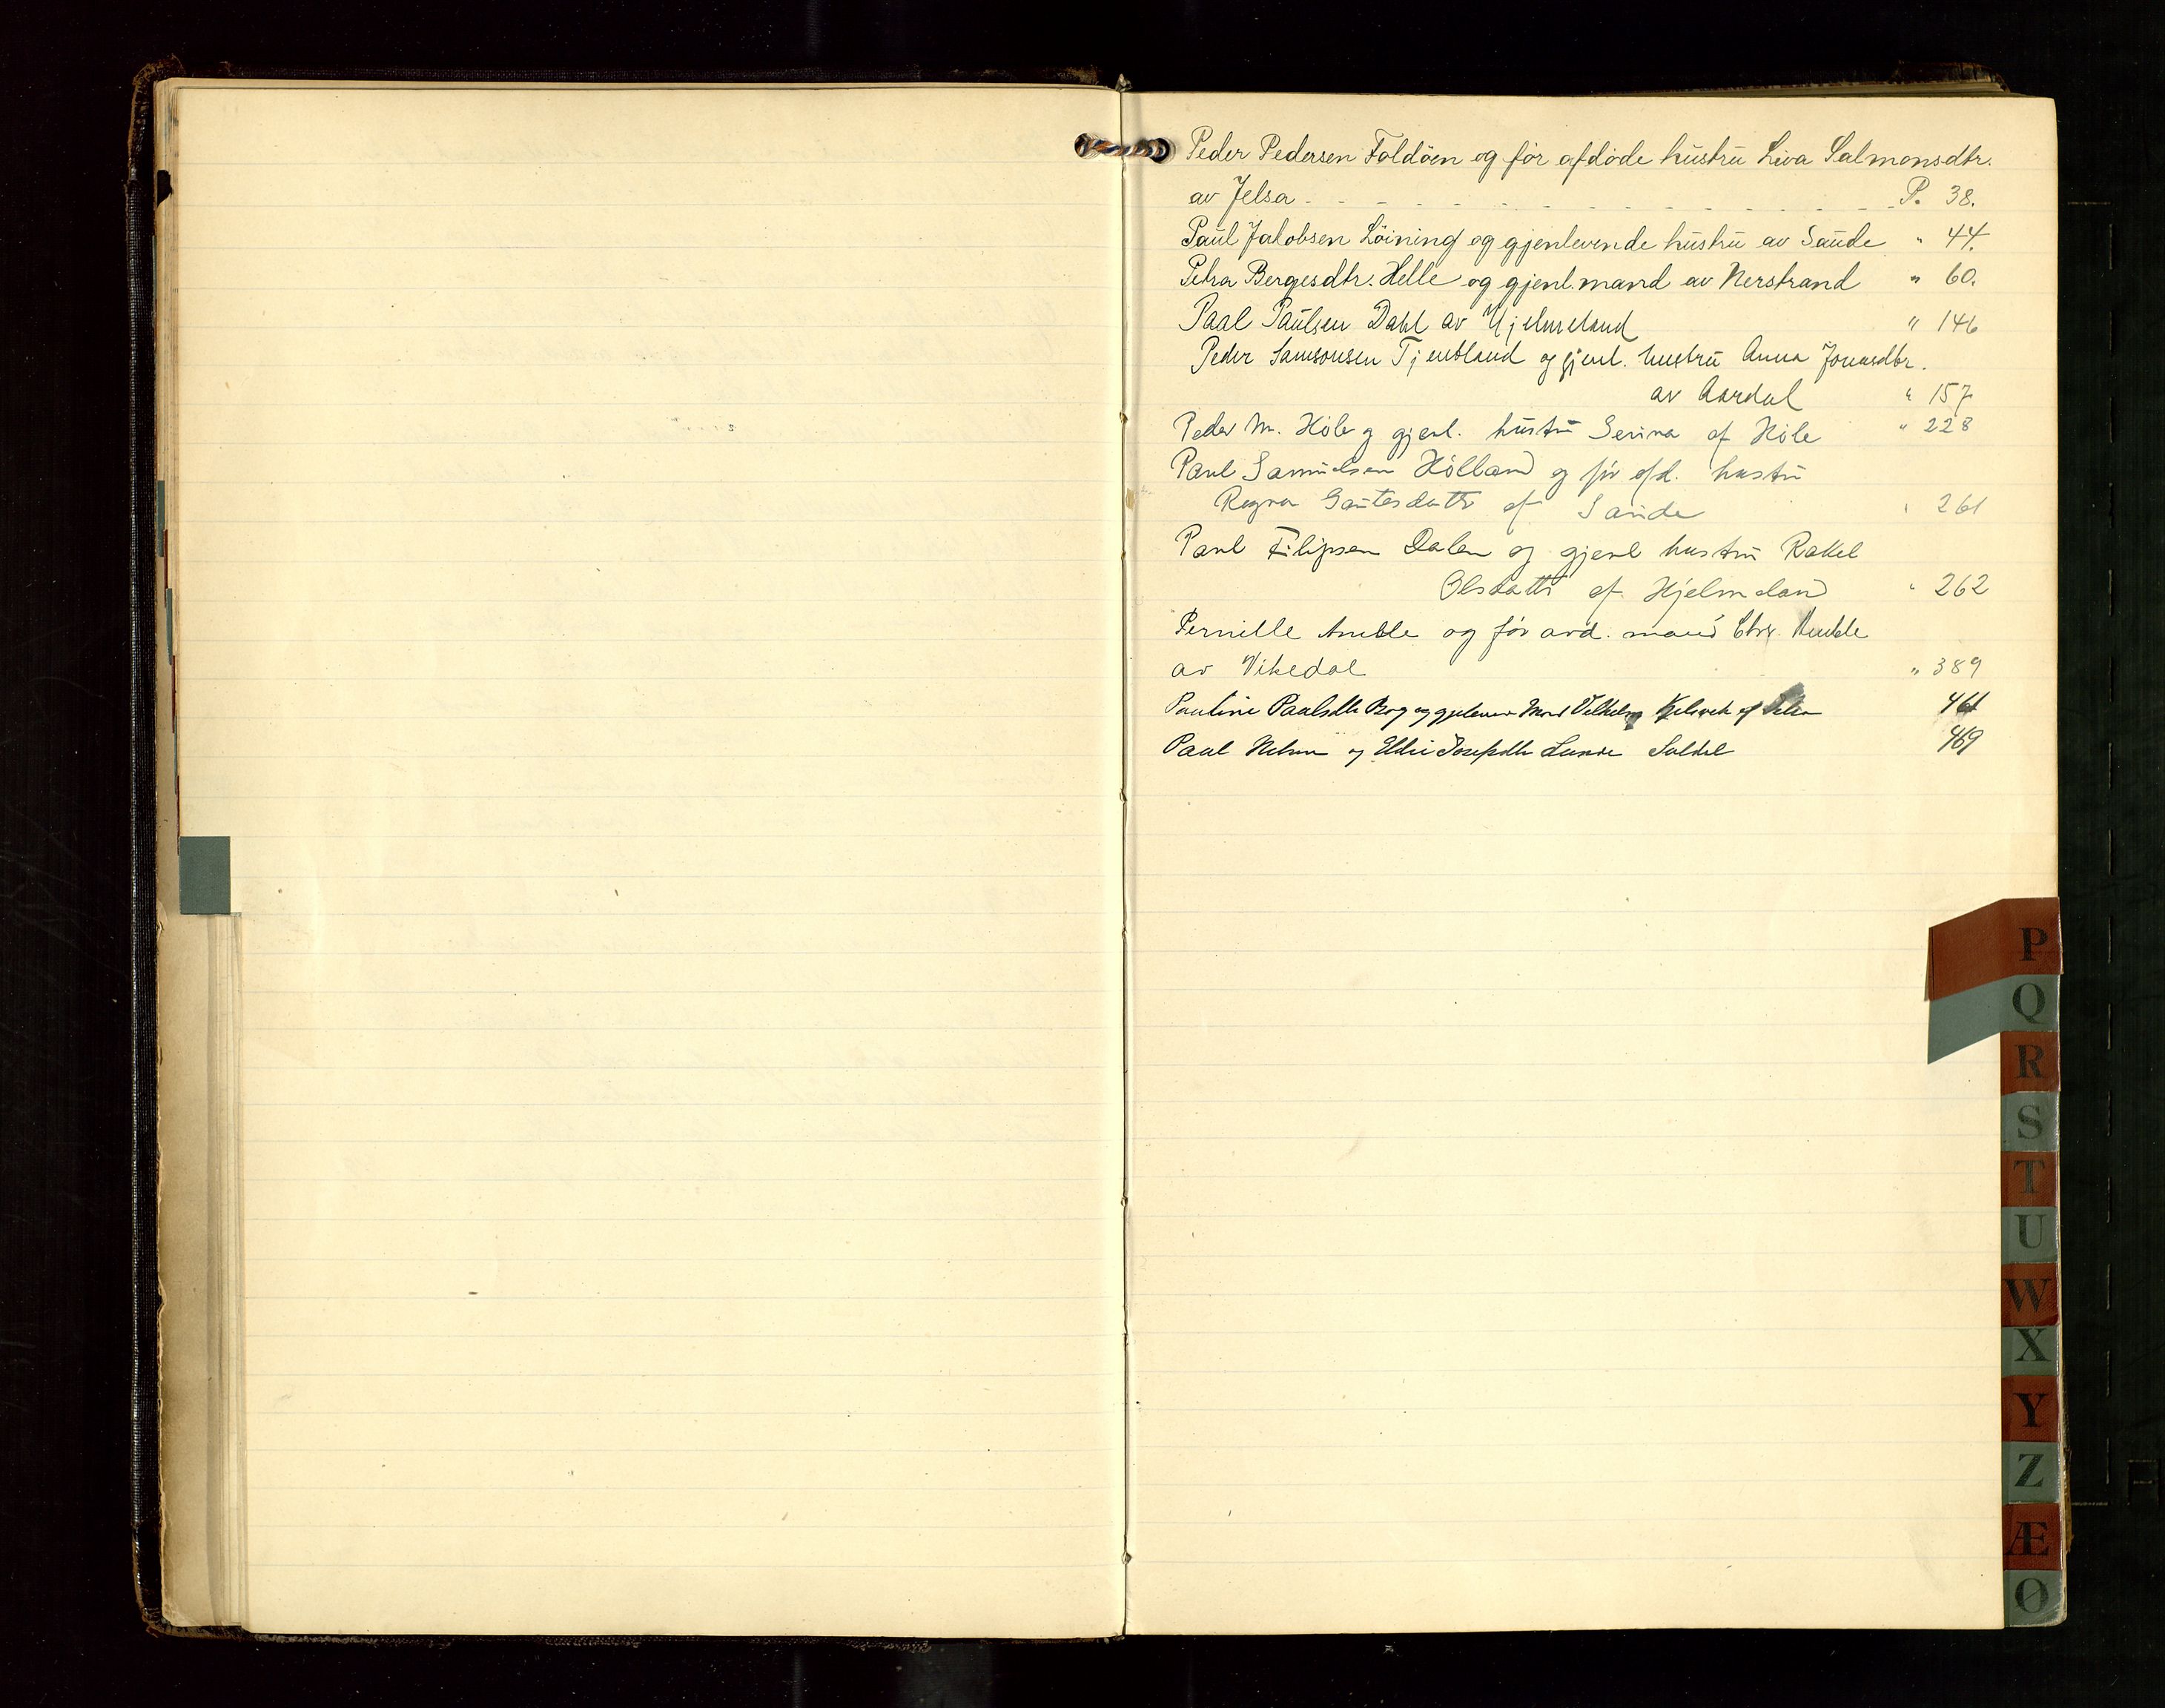 Peder Pedersen Foldöen og før afdøde hustru Liva Salmonsdtr.
av Jelsa - - - - - - - - - - - - - - - P. 38.
Paul Jakobsen Löining og gjenlevende hustru av Saude " 44.
Petra Bergesdtr. Helle og gjenl. mand av Nerstrand " 60.
Paal Paulsen Dahl av Hjelmeland " 146
Peder Samsonsen Tjentland og gjenl. hustru Anna Jonasdtr.
av Aardal " 157
Peder M. Höle og gjenl. hustru Serina af Höle " 228
Paul Samuelsen Hölland og før afd. hustru
Ragna Gautesdattr af Saude " 261
Paul Filipsen Dalen og gjenl hustru Rakel
Olsdattr af Hjelmeland " 262
Pernille Amble og før avd. mand Chr. Amble
av Vikedal " 389
Pauline Paalsdtr Berg og gjenlevende Mand Vilhelm af Jelsa 461
Paul og Eldri Josefsdtr Lunde Suldal 469
P
Q
R
S
T
U
W
X
Y
Z
Æ
Ø